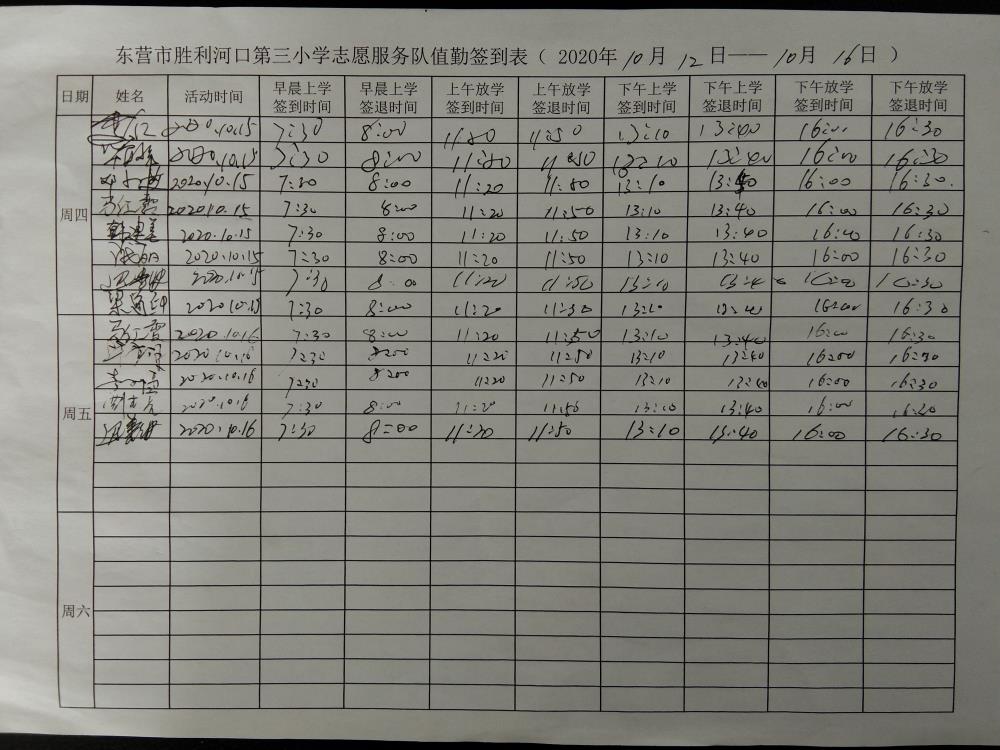 东营市胜利河口第三小学志愿服务队值勤签到表（ 2020年 10月 12日——10月 16日 ）
日期 姓名 活动时间 早晨上学签到时间 早晨上学签退时间 上午放学签到时间 上午放学签退时间 下午上学签到时间 下午上学签退时间 下午放学签到时间 下午放学签退时间
周四
2020.10.15 7:30 8:00 11:20 11:50 13:10 13:40 16:00 16:30
2020.10.15 7:30 8:00 11:20 11:50 13:10 13:40 16:00 16:30
2020.10.15 7:30 8:00 11:20 11:50 13:10 13:40 16:00 16:30.
2020.10.15 7:30 8:00 11:20 11:50 13:10 13:40 16:00 16:30
2020.10.15 7:30 8:00 11:20 11:50 13:10 13:40 16:00 16:30
2020.10.15 7:30 8:00 11:20 11:50 13:10 13:40 16:00 16:30
2020.10.15 7:30 8:00 11:20 11:50 13:10 13:40 16:00 16:30
2020.10.15 7:30 8:00 11:20 11:50 13:10 13:40 16:00 16:30
周五
2020.10.16 7:30 8:00 11:20 11:50 13:10 13:40 16:00 16:30
2020.10.16 7:30 8:00 11:20 11:50 13:10 13:40 16:00 16:30
2020.10.16 7:30 8:00 11:20 11:50 13:10 13:40 16:00 16:30
2020.10.16 7:30 8:00 11:20 11:50 13:10 13:40 16:00 16:30
2020.10.16 7:30 8:00 11:20 11:50 13:10 13:40 16:00 16:30
周六